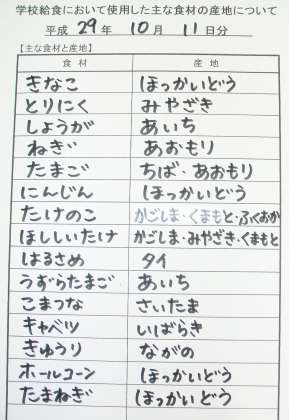 学校給食において使用した主な食材の産地について
平成 29 年 10 月 11 日分
【主な食材と産地】
食材 産地
きなこ ほっかいどう
とりにく みやざき
しょうが あいち
ねぎ あおもり
たまご ちば・あおもり
にんじん ほっかいどう
たけのこ かごしま・くまもと・ふくおか
ほししいたけ かごしま・みやざき・くまもと
はるさめ タイ
うずらたまご あいち
こまつな さいたま
キャベツ いばらき
きゅうり ながの
ホールコーン ほっかいどう
たまねぎ ほっかいどう